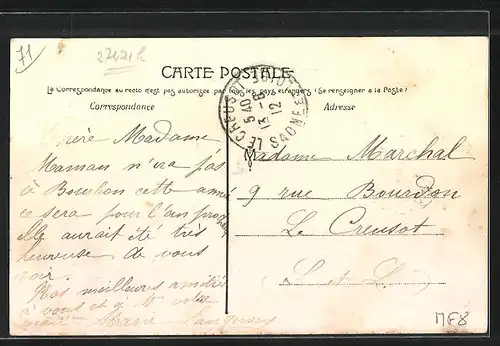 71
27671 R
CARTE POSTALE
La Correspondance au recto n'est pas autorisée par tous les pays étrangers (Se renseigner à la Poste)
Correspondance
Adresse
LE CREUSOT SAONE-ET-LOIRE
5 40
13 - 8
12
Chère Madame
Maman n'ira pas
à Bourbon cette année
ce sera pour l'an prochain
elle aurait été très
heureuse de vous
voir.
Nos meilleures amitiés
à vous et à Mr votre
mari Marie
Madame Marchal
9 rue Bourdon
Le Creusot
(S et L)
MF8